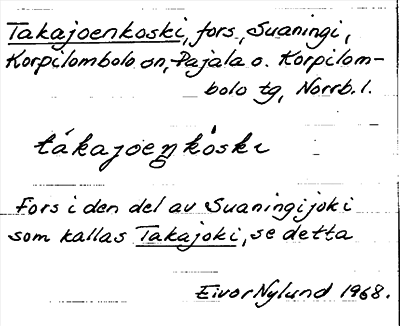 Takajoenkoski, fors, Suaningi,
Korpilombolo sn, Pajala o. Korpilom-
bolo tg, Norrb. l.
tákajoeŋkòskı
Fors i den del av Suaningijoki
som kallas Takajoki, se detta
Eivor Nylund 1968.